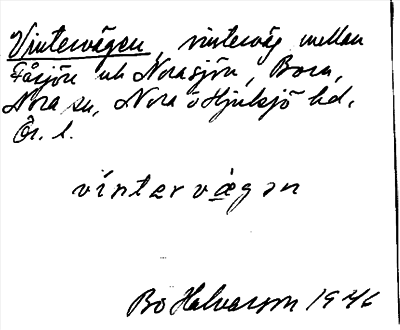 Vintervägen, vinterväg mellan
Fåsjön och Norasjön, Born,
Nora sn, Nora o Hjulsjö hd,
Ör. l.
vintervägen
Bo Halvarson 1946